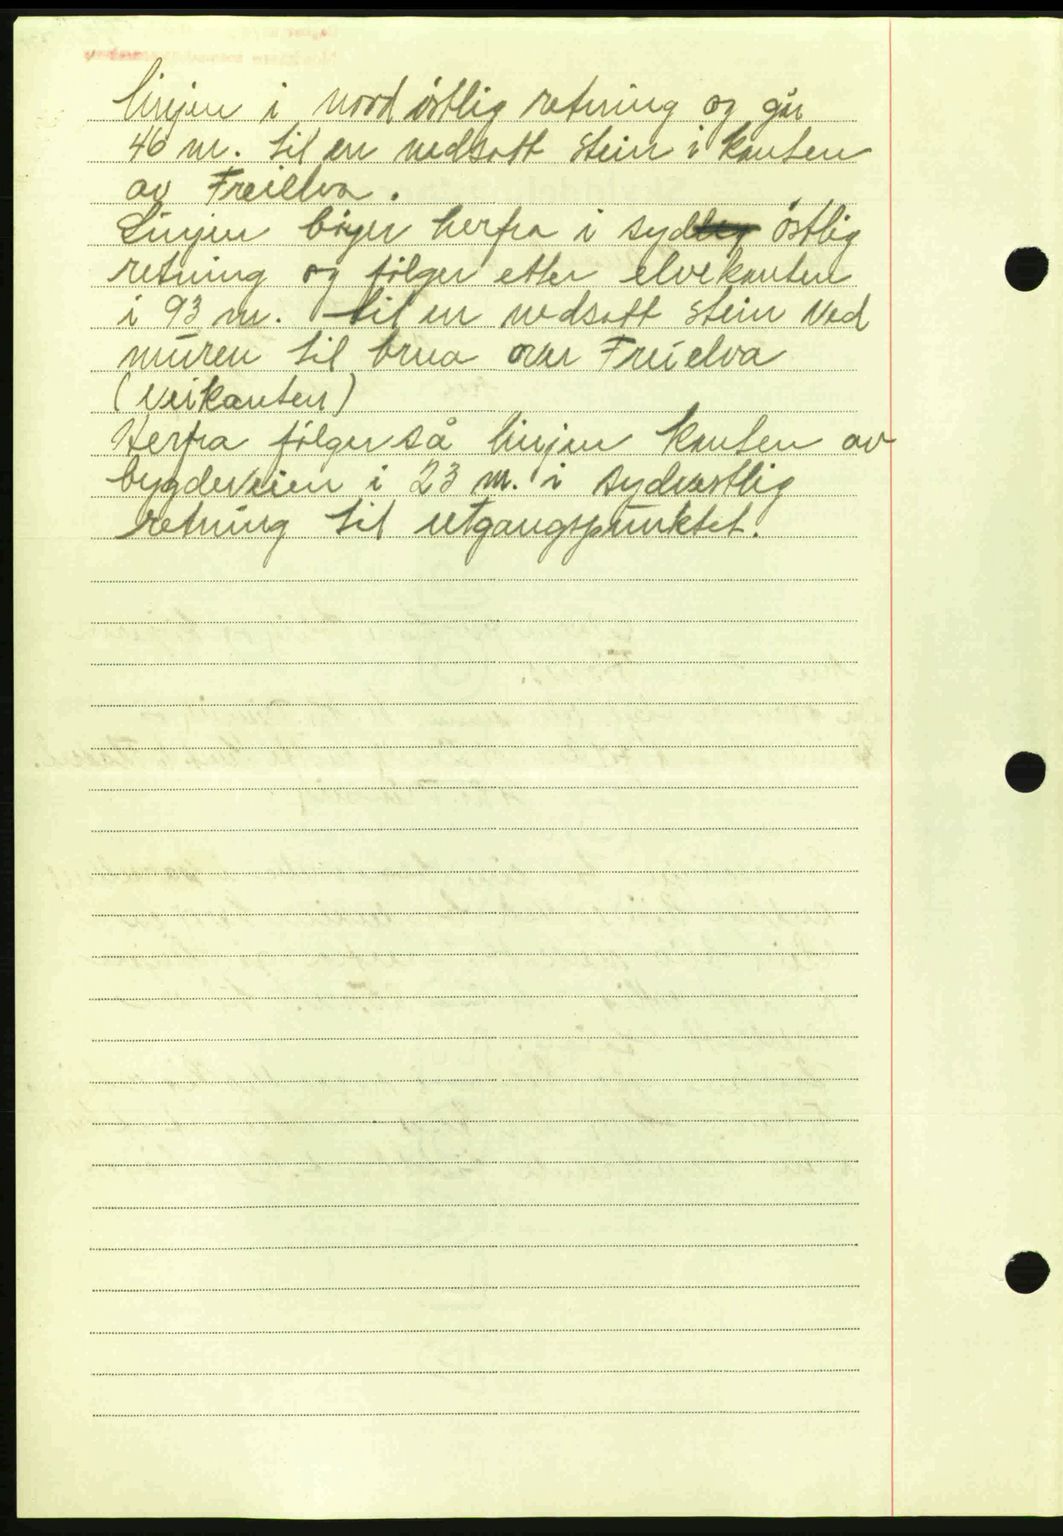 linjen i nord östlig retning og går
46 m. til en nedsatt stein i kanten
av Freielva.
Linjen böyer herfra i syd östlig
retning og fölger etter elvekanten
i 93 m. til en nedsatt stein ved
muren til brua over Freielva
(veikanten)
Herfra fölger så linjen kanten av
bygdeveien i 23 m. i sydvestlig
retning til utgangspunktet.